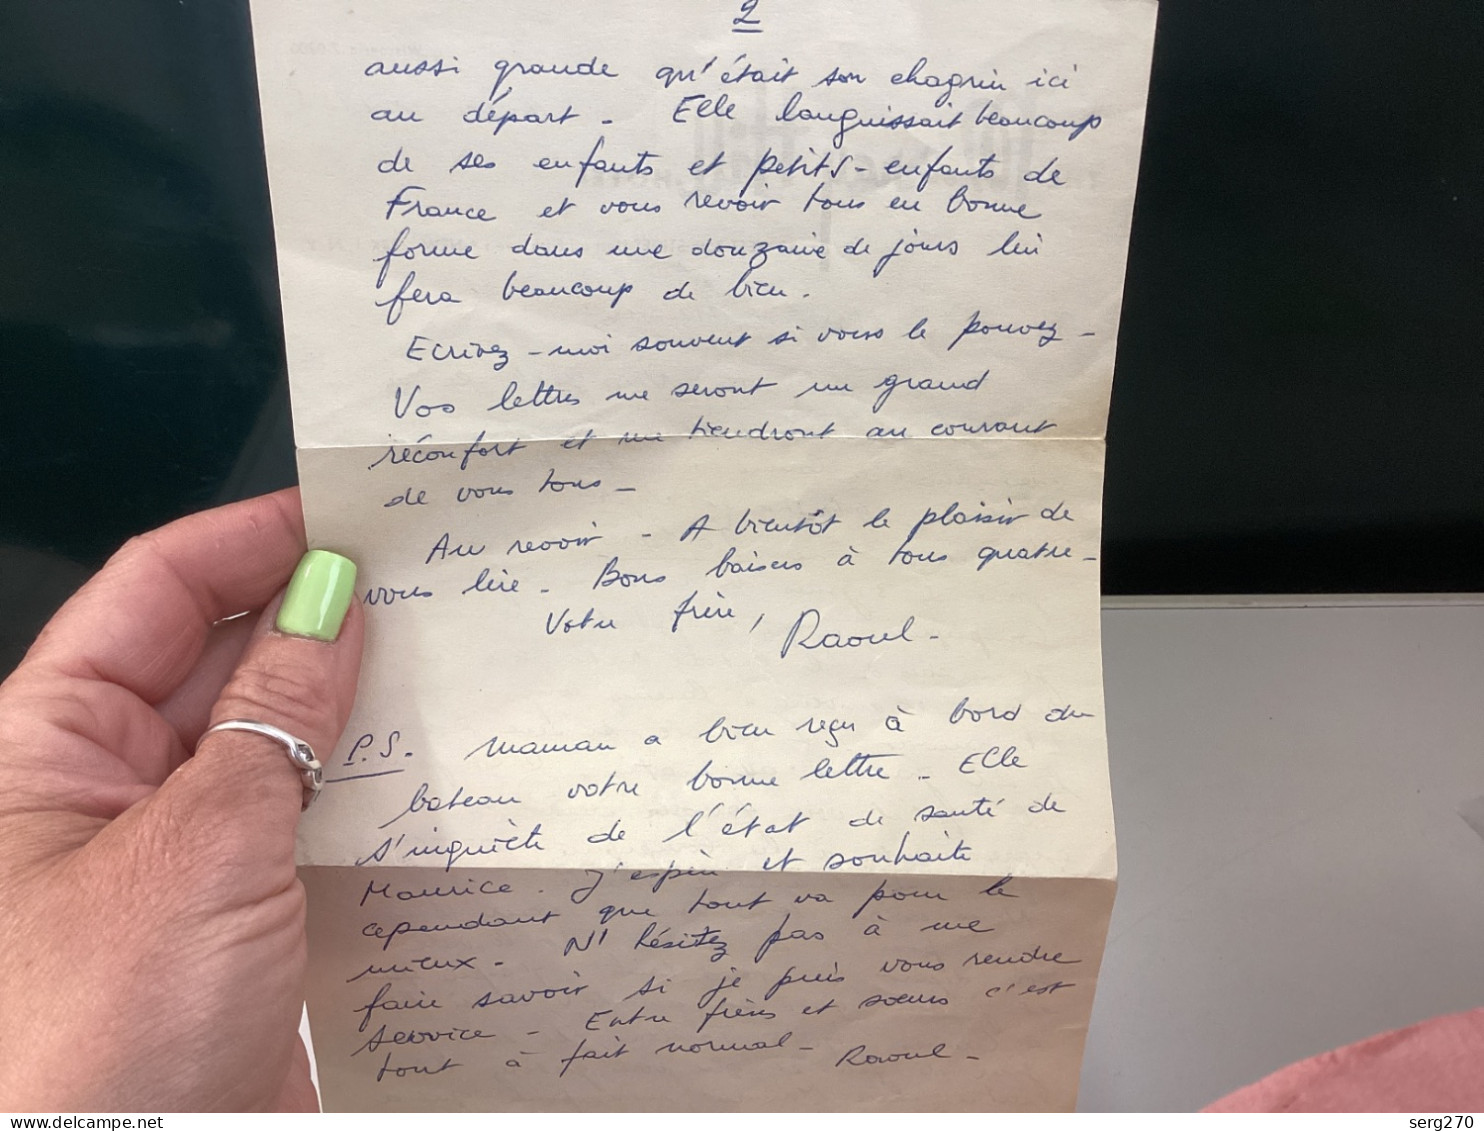 2
aussi grande qu'était son chagrin ici
au départ - Elle languissait beaucoup
de ses enfants et petits-enfants de
France et vous revoir tous en bonne
forme dans une douzaine de jours lui
fera beaucoup de bien.
Ecrivez-moi souvent si vous le pouvez -
Vos lettres me seront un grand
réconfort et me tiendront au courant
de vous tous -
Au revoir - A bientôt le plaisir de
vous lire - Bons baisers à tous quatre -
Votre frère,
Raoul -
P.S. - Maman a bien reçu à bord du
bateau votre bonne lettre - Elle
s'inquiète de l'état de santé de
Maurice. J'espère et souhaite
cependant que tout va pour le
mieux - N'hésitez pas à me
faire savoir si je puis vous rendre
service - Entre frères et soeurs c'est
tout à fait normal - Raoul -
delcampe.net
serg270